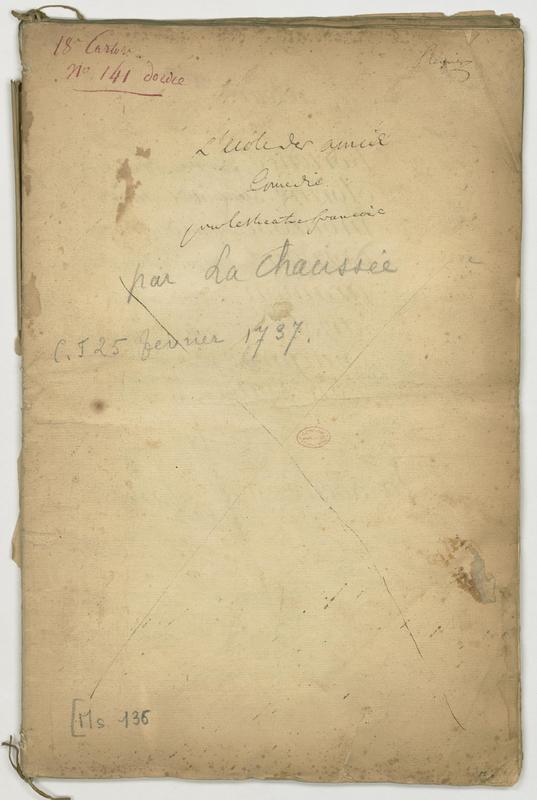 18e Carton
No 141 double
Régnier
L'école des amis
Comedie
pour le theatre francois
par La Chaussée
C. F 25 fevrier 1737.
[Ms 136